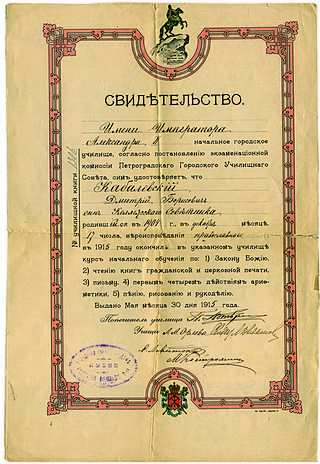 СВИДѢТЕЛЬСТВО.
Имени Императора
Александра II начальное городское
училище, согласно постановленію экзаменаціонной
комиссіи Петроградскаго Городского Училищнаго
Совѣта, симъ удостовѣряетъ, что
Кабалевскій
Дмитрій Борисовичъ
сынъ Коллежскаго Совѣтника
родившійся въ 1904 г. въ декабрѣ мѣсяцѣ
17 числа, вѣроисповѣданія православнаго
въ 1915 году окончилъ въ указанномъ училищѣ
курсъ начальнаго обученія по: 1) Закону Божію,
2) чтенію книгъ гражданской и церковной печати,
3) письму, 4) первымъ четыремъ дѣйствіямъ ариѳ-
метики, 5) пѣнію, рисованію и рукодѣлію.
Выдано Мая мѣсяца 30 дня 1915 года.
Попечитель училища
Учащіе
№ училищной книги